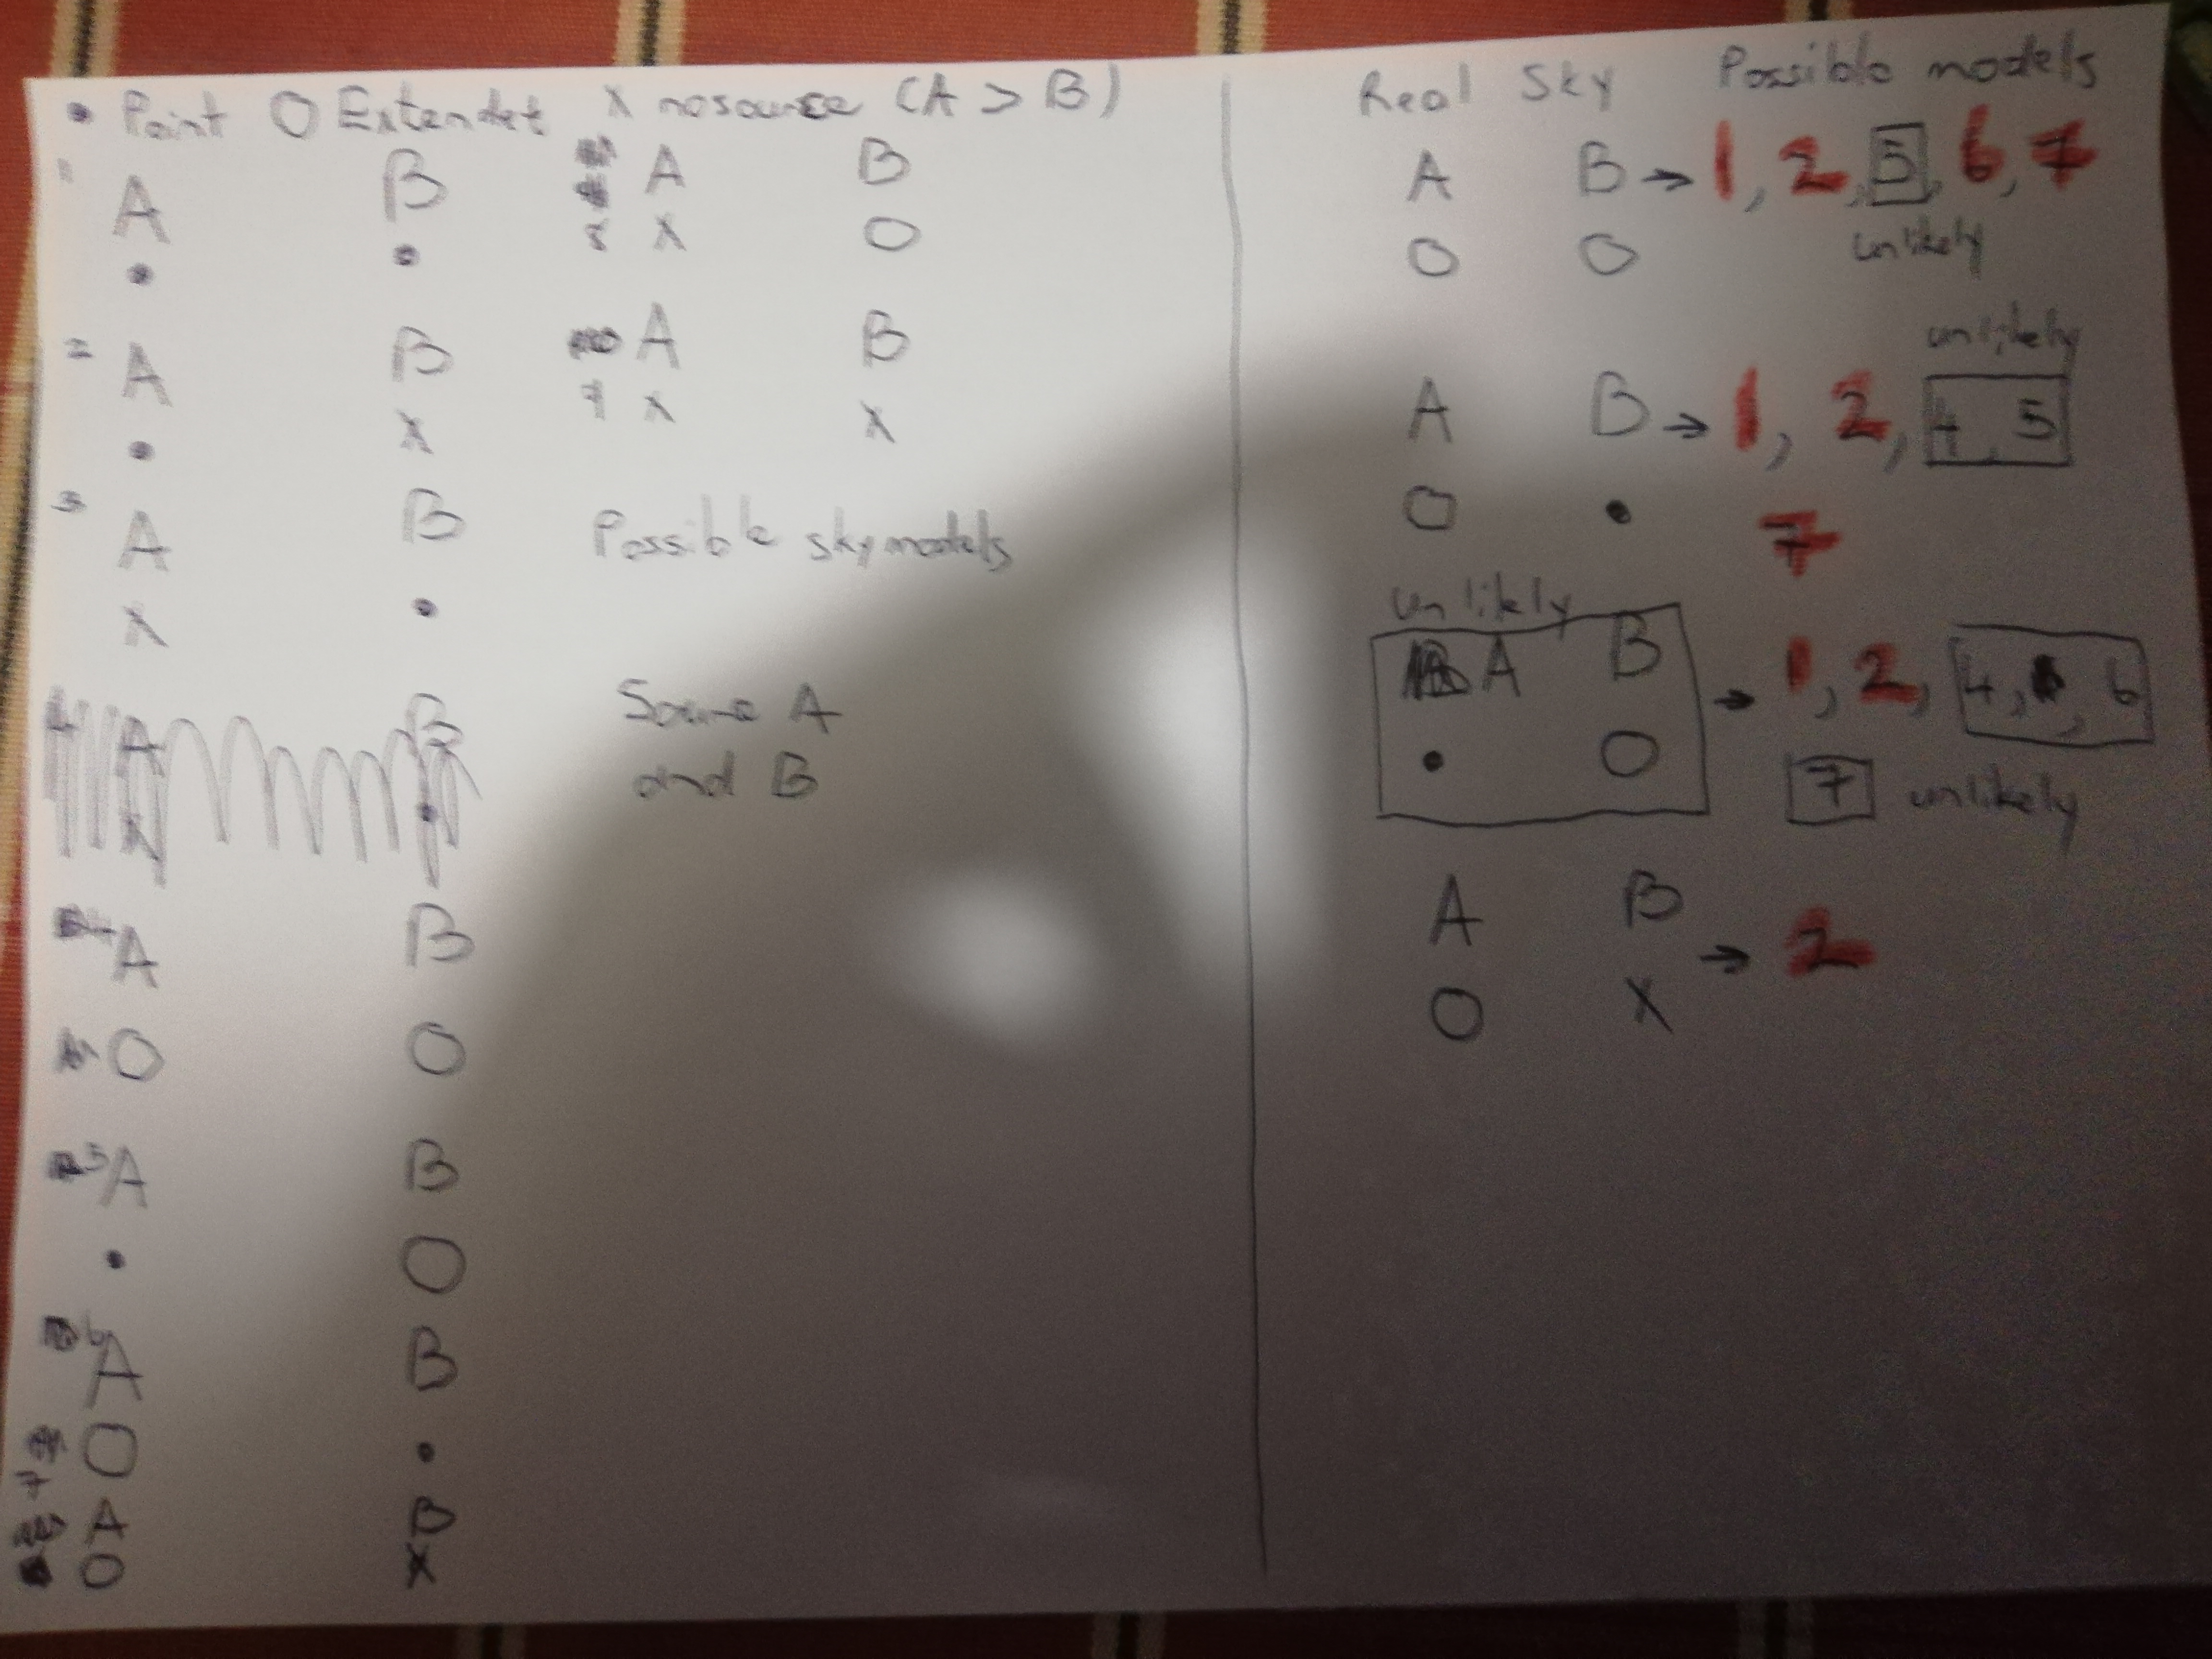 • Point O Extendet X nosource (A > B)
1 A B
• •
2 A B
• X
3 A B
X •
4 A B
X •
4 A B
O O
5 A B
• O
6 A B
O •
7 A B
O X
A B
8 X O
A B
7 X X
Possible skymodels
Source A
and B
Real Sky Possible models
A B → 1, 2, 5, 6, 7
O O unlikely
unlikely
A B → 1, 2, 4, 5
O • 7
unlikely
A B → 1, 2, 4, 6
• O 7 unlikely
A B → 2
O X